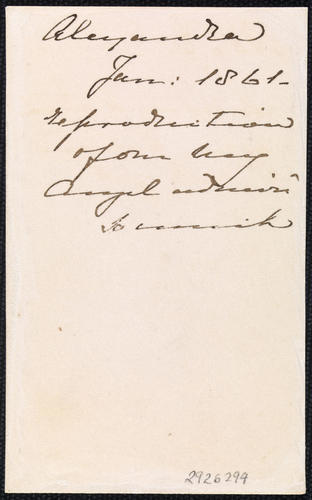 Alexandra
Jan: 1861-
reproduction
of one my
Angel admired
so much
2926299